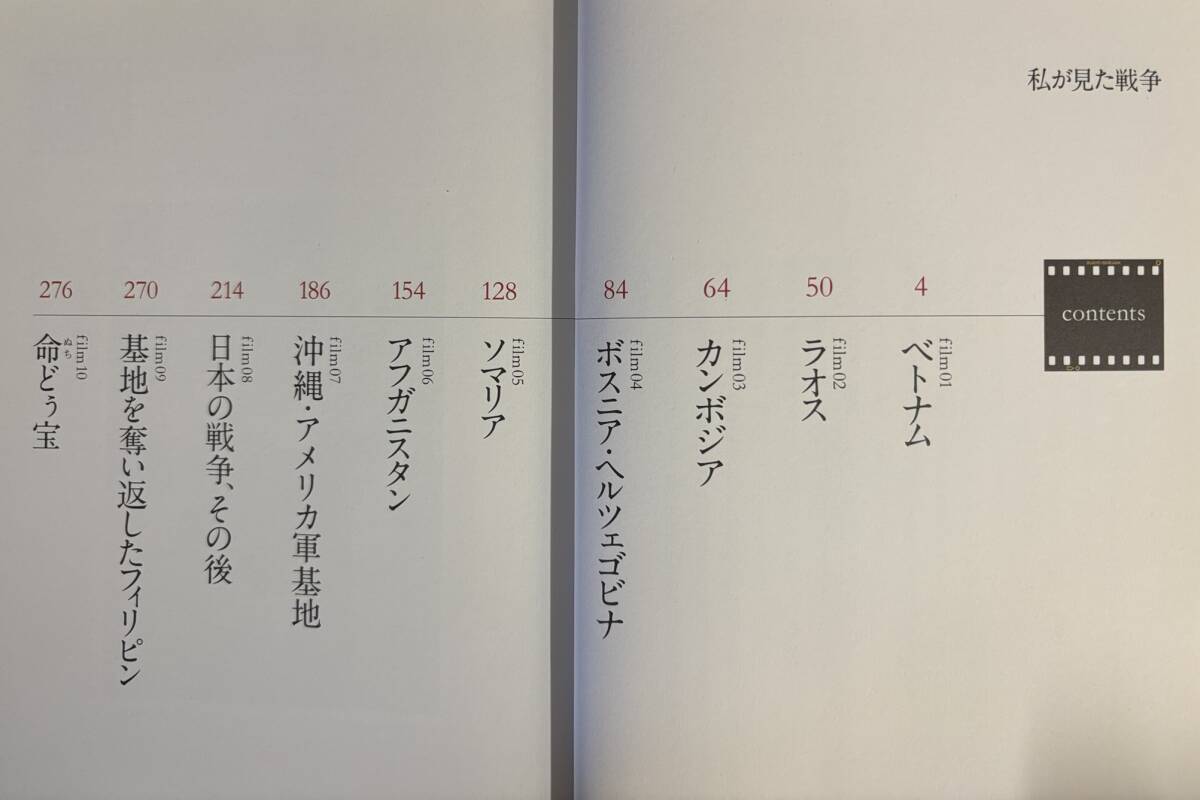 私が見た戦争
contents
4
film01
ベトナム
50
film02
ラオス
64
film03
カンボジア
84
film04
ボスニア・ヘルツェゴビナ
128
film05
ソマリア
154
film06
アフガニスタン
186
film07
沖縄・アメリカ軍基地
214
film08
日本の戦争、その後
270
film09
基地を奪い返したフィリピン
276
film10
命どぅ宝
ぬち